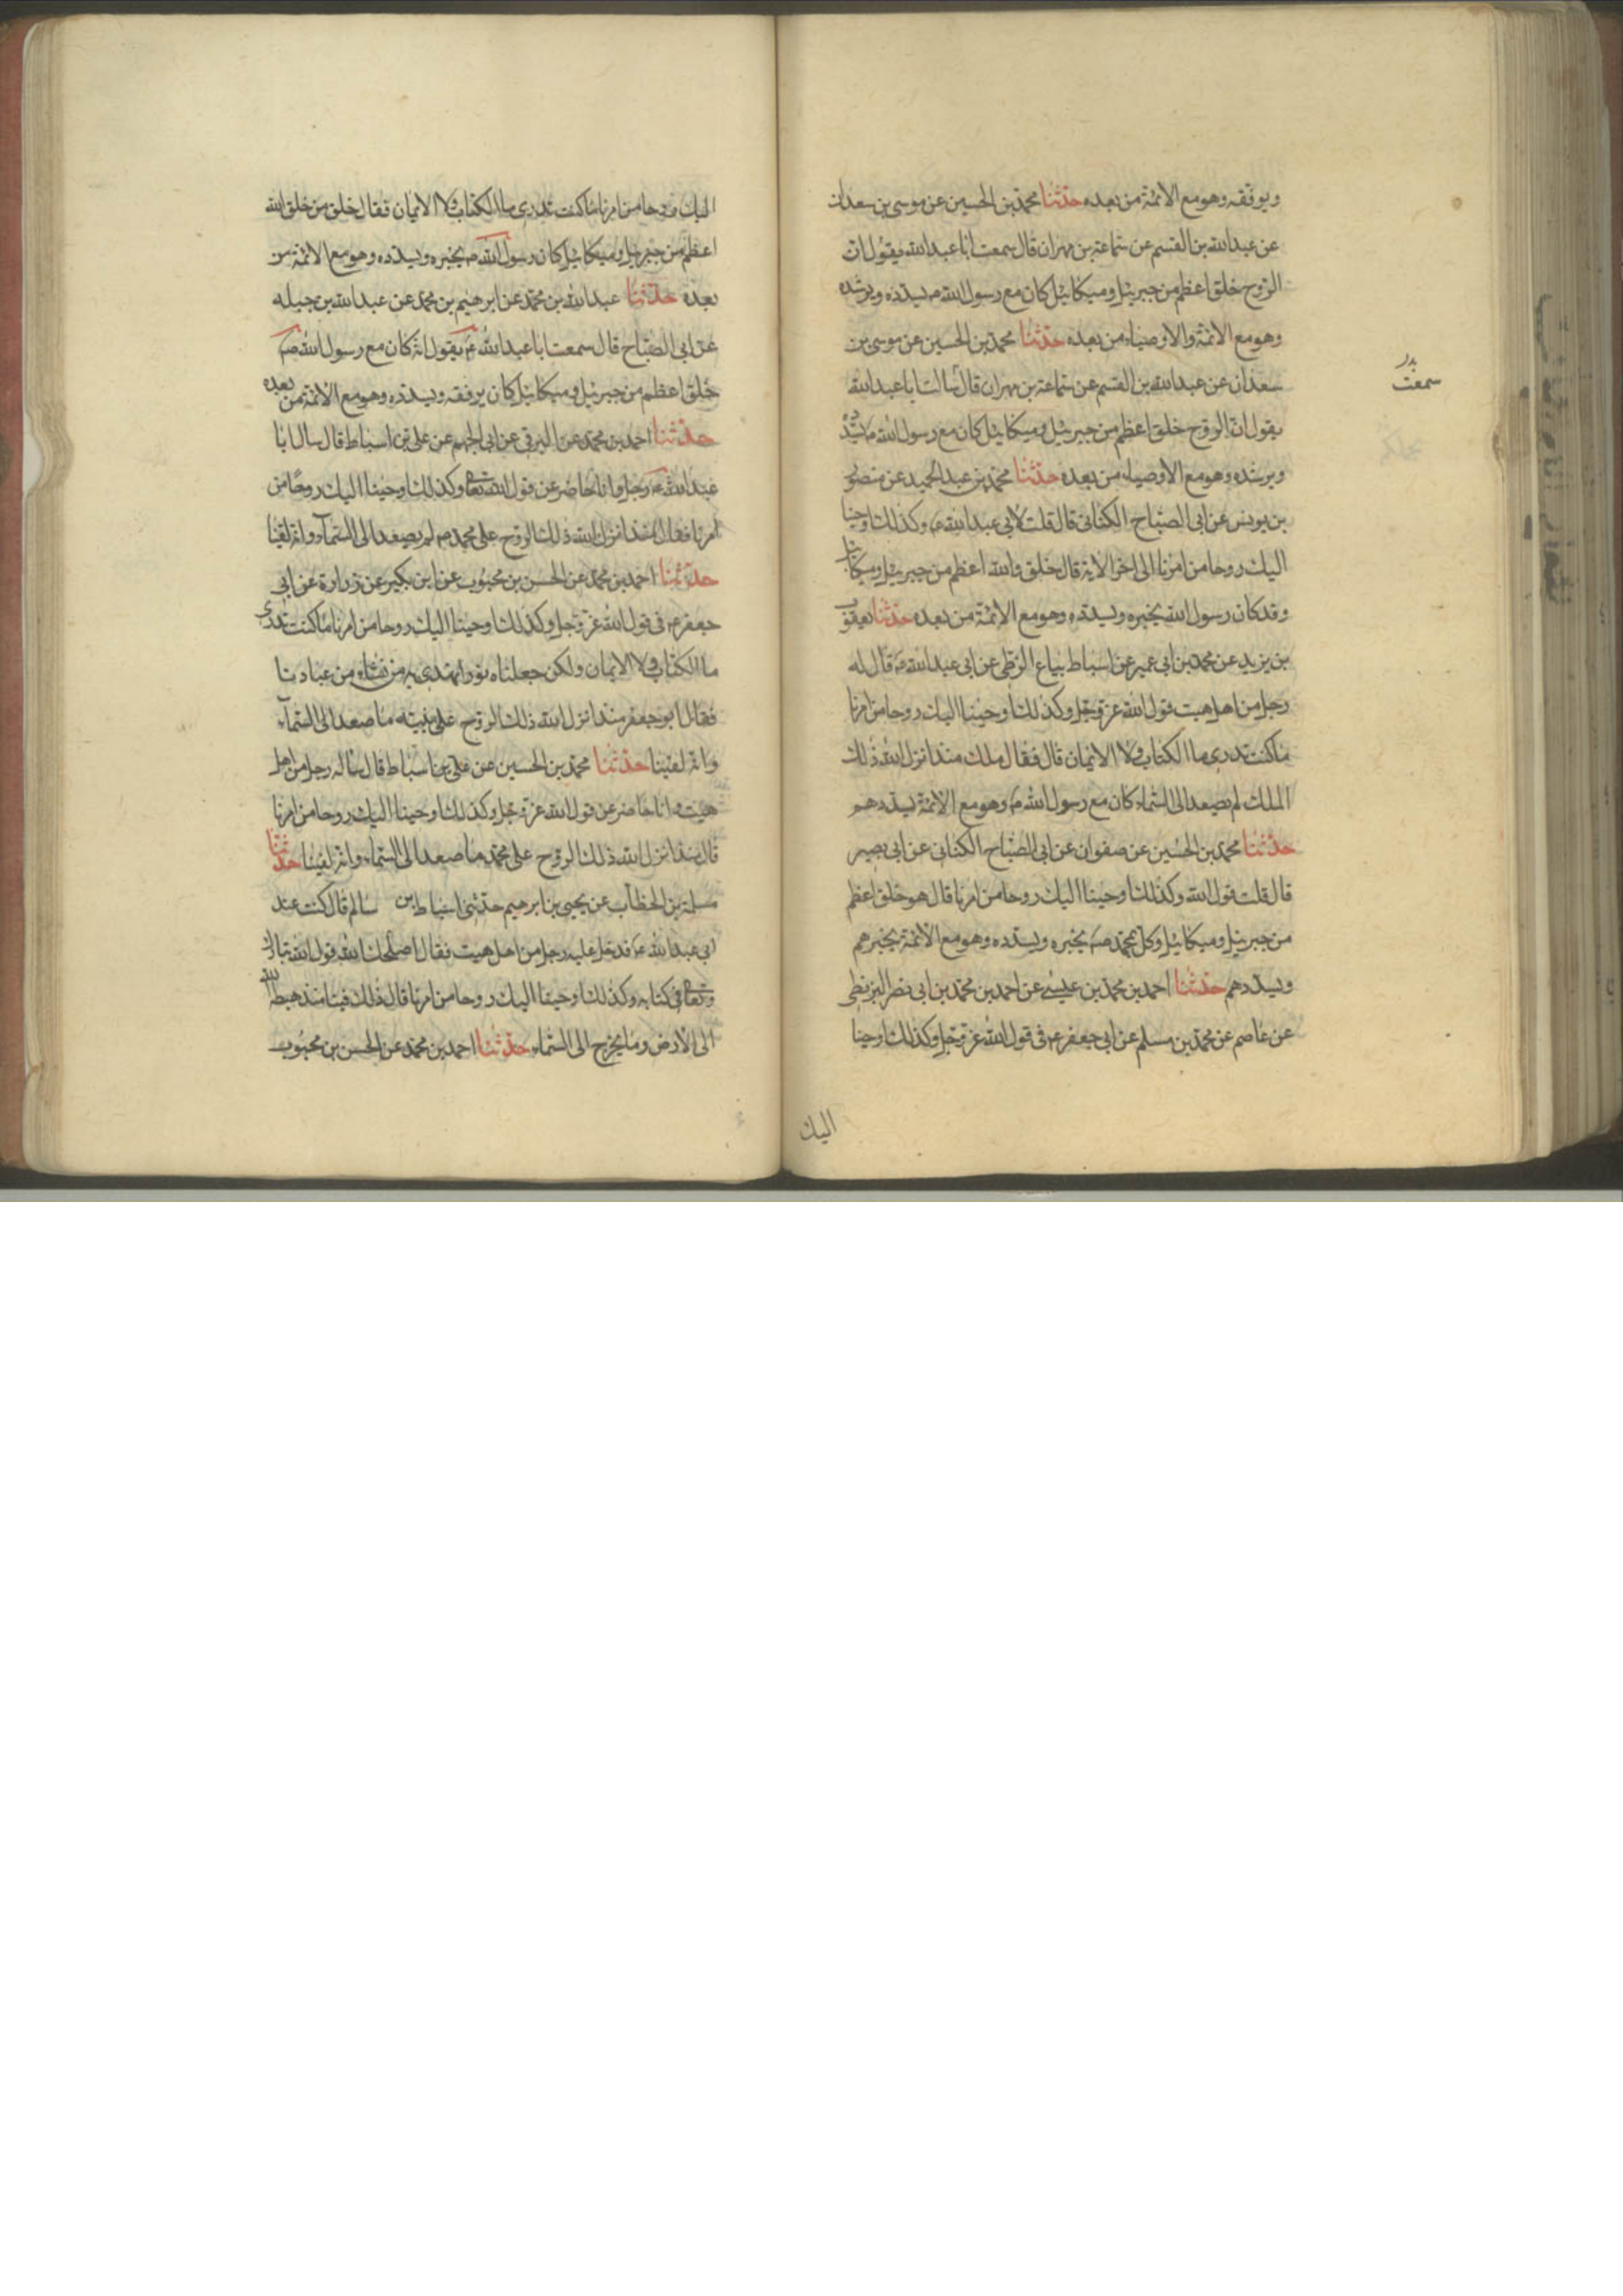 ويوفقه وهو مع الائمة من بعده حدثنا محمد بن الحسين عن موسى بن سعدان
عن عبد الله بن القسم عن سماعة بن مهران قال سمعت ابا عبد الله يقول ان
الروح خلق اعظم من جبرئيل وميكائيل كان مع رسول الله ص يسدده ويرشده
وهو مع الائمة والاوصياء من بعده حدثنا محمد بن الحسين عن موسى بن
سعدان عن عبد الله بن القسم عن سماعة بن مهران قال سالت ابا عبد الله
سمعت
يقول ان الروح خلق اعظم من جبرئيل وميكائيل كان مع رسول الله ص يسدده
ويرشده وهو مع الاوصياء من بعده حدثنا محمد بن عبد الحميد عن منصور
بن يونس عن ابي الصباح الكناني قال قلت لابي عبد الله ع وكذلك اوحينا
اليك روحا من امرنا الى اخر الاية قال خلق والله اعظم من جبرئيل وميكائيل
وقد كان رسول الله يخبره ويسدده وهو مع الائمة من بعده حدثنا يعقوب
بن يزيد عن محمد بن ابي عمير عن اسباط بياع الزطي عن ابي عبد الله ع قال له
رجل من اهل هيت قول الله عز وجل وكذلك اوحينا اليك روحا من امرنا
ما كنت تدرى ما الكتاب ولا الايمان قال فقال ملك منذ انزل الله ذلك
الملك لم يصعد الى السماء كان مع رسول الله ص وهو مع الائمة يسددهم
حدثنا محمد بن الحسين عن صفوان عن ابي الصباح الكناني عن ابي بصير
قال قلت قول الله وكذلك اوحينا اليك روحا من امرنا قال هو خلق اعظم
من جبرئيل وميكائيل وكل بمحمد ص يخبره ويسدده وهو مع الائمة يخبرهم
ويسددهم حدثنا احمد بن محمد بن عيسى عن احمد بن محمد بن ابي نصر البزنطي
عن عاصم عن محمد بن مسلم عن ابي جعفر ع فى قول الله عز وجل وكذلك اوحينا
اليك
اليك روحا من امرنا ما كنت تدرى ما الكتاب ولا الايمان فقال خلق من خلق الله
اعظم من جبرئيل وميكائيل كان رسول الله ص يخبره ويسدده وهو مع الائمة من
بعده حدثنا عبد الله بن محمد عن ابرهيم بن محمد عن عبد الله بن جبله
عن ابي الصباح قال سمعت ابا عبد الله ع يقول انه كان مع رسول الله ص
خلق اعظم من جبرئيل وميكائيل كان يوفقه ويسدده وهو مع الائمة من بعده
حدثنا احمد بن محمد عن البرقي عن ابي الجهم عن علي بن اسباط قال سال ابا
عبد الله ع رجل وانا حاضر عن قول الله تعالى وكذلك اوحينا اليك روحا من
امرنا فقال منذ انزل الله ذلك الروح على محمد ص لم يصعد الى السماء وانه لفينا
حدثنا احمد بن محمد عن الحسن بن محبوب عن ابن بكير عن زرارة عن ابي
جعفر ع فى قول الله عز وجل وكذلك اوحينا اليك روحا من امرنا ما كنت تدرى
ما الكتاب ولا الايمان ولكن جعلناه نورا نهتدى به من نشاء من عبادنا
فقال ابو جعفر منذ انزل الله ذلك الروح على نبيه ما صعد الى السماء
وانه لفينا حدثنا محمد بن الحسين عن علي بن اسباط قال ساله رجل من اهل
هيت وانا حاضر عن قول الله عز وجل وكذلك اوحينا اليك روحا من امرنا
قال منذ انزل الله ذلك الروح على محمد ما صعد الى السماء وانه لفينا حدثنا
سلمة بن الخطاب عن يحيى بن ابرهيم حدثنى اسباط بن سالم قال كنت عند
ابي عبد الله ع فدخل عليه رجل من اهل هيت فقال اصلحك الله قول الله تبارك
وتعالى فى كتابه وكذلك اوحينا اليك روحا من امرنا قال ذلك فينا منذ هبطه الله
الى الارض وما يخرج الى السماء حدثنا احمد بن محمد عن الحسن بن محبوب